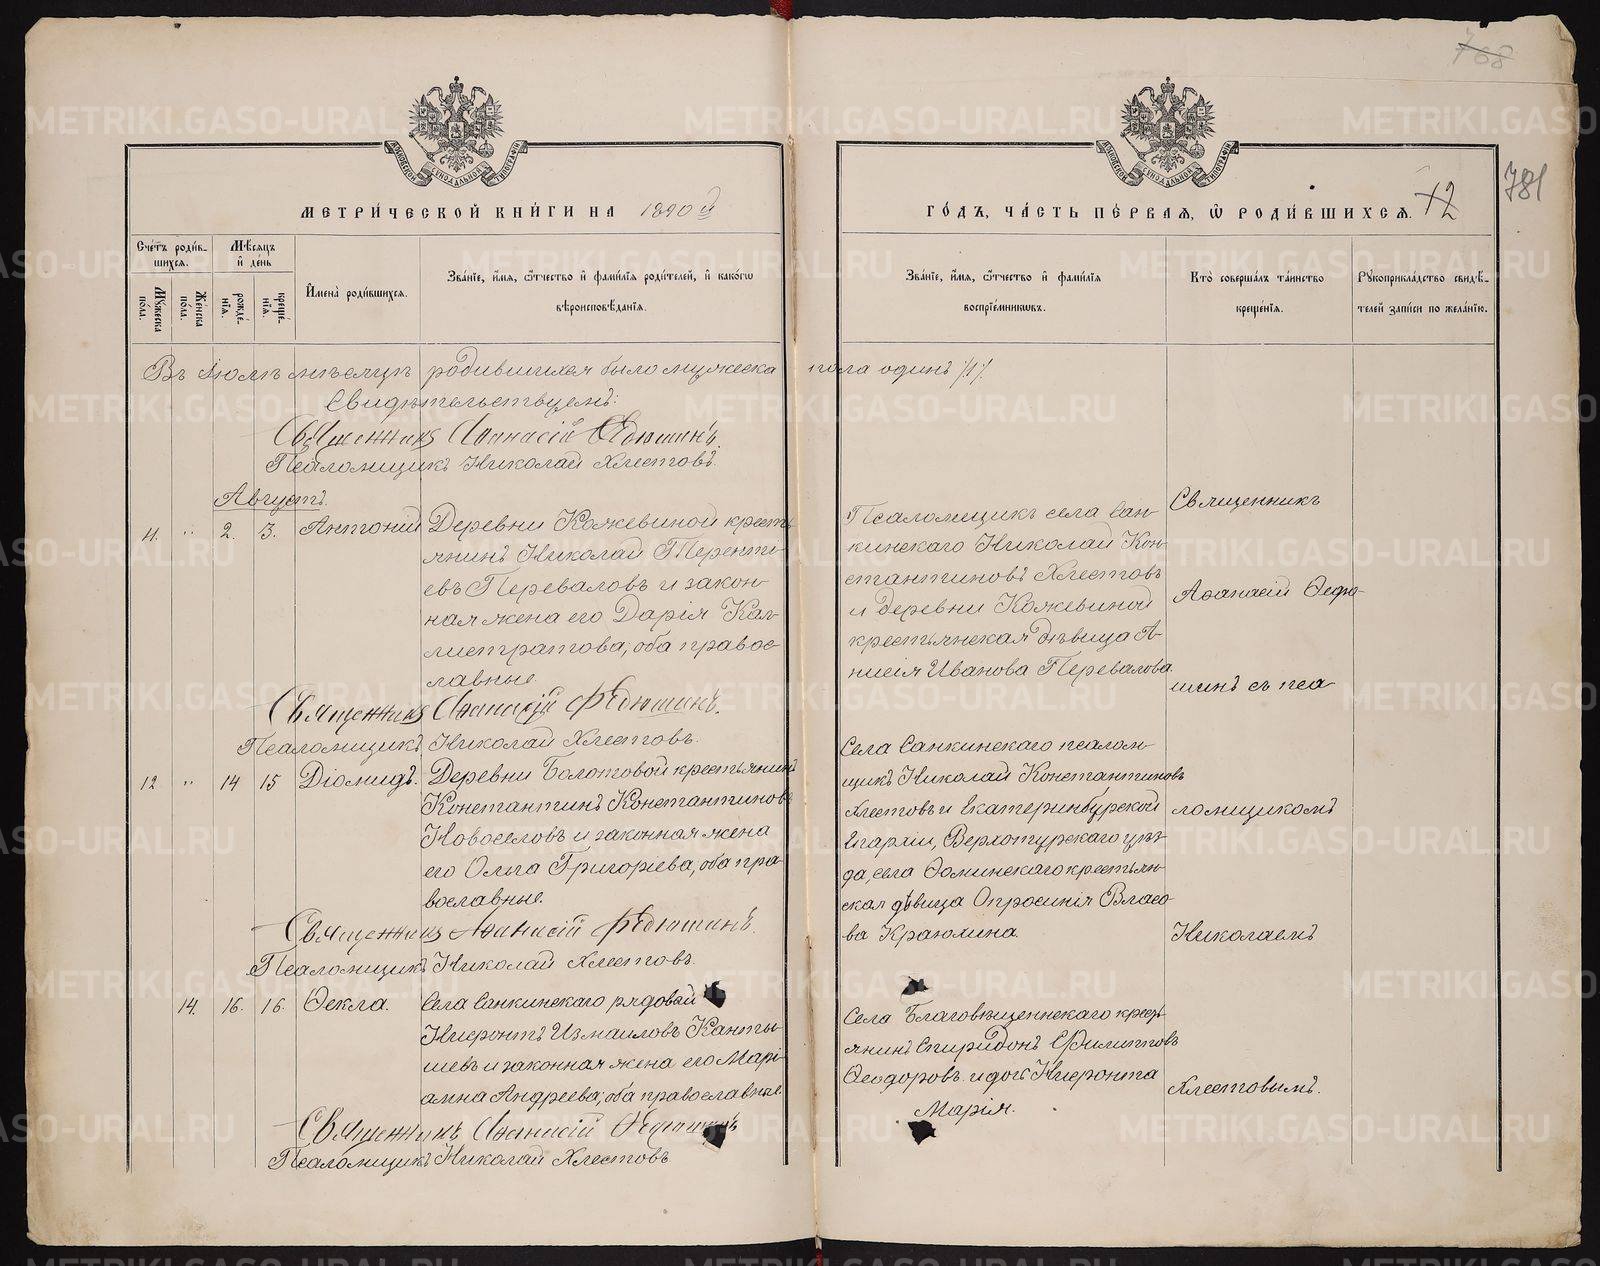 768
781
12
МЕТРИ́ЧЕСКОЙ КНИ́ГИ НА 1890й
ГО́ДЪ, ЧА́СТЬ ПЕ́РВАЯ, Ѡ РОДИ́ВШИХСЯ.
Сче́тъ роди́в-
шихся.
Мѣ́сяцъ
и҆ де́нь
Мꙋ́жеска
по́ла.
Же́нска
по́ла.
рожде́-
нїя.
креще́-
нїя.
И҆мена̀ роди́вшихся.
Зва́нїе, и҆́мя, ѻ҆́тчество и҆ фами́лїя роди́телей, и҆ како́гѡ
вѣроисповѣ́данїя.
Зва́нїе, и҆́мя, ѻ҆́тчество и҆ фами́лїя
воспрїе́мникѡвъ.
Кто̀ соверша́лъ та́инство
креще́нїя.
Рꙋкоприкла́дство свидѣ́-
телей за́писи по жела́нїю.
Въ Іюлѣ мѣсяцѣ родившихся было мужеска пола одинъ /1/.
Свидѣтельствуемъ:
Священникъ Аѳанасій Ѳедюшинъ.
Псаломщикъ Николай Хлестовъ.
Августъ.
11. " 2. 3. Антоній
Деревни Кожевиной кресть-
янинъ Николай Терентi-
евъ Переваловъ и закон-
ная жена его Дарія Кал-
листратова, оба правос-
лавные.
Псаломщикъ села Сан-
кинскаго Николай Кон-
стантиновъ Хлестовъ
и деревни Кожевиной
крестьянская дѣвица А-
нисія Иванова Перевалова.
Священникъ
Аѳанасій Ѳедю-
шинъ съ пса-
ломщикомъ
Николаемъ
Хлестовымъ.
Священникъ Аѳанасій Ѳедюшинъ.
Псаломщикъ Николай Хлестовъ.
12 " 14 15 Діомидъ.
Деревни Болотовой крестьянинъ
Константинъ Константиновъ
Новоселовъ и законная жена
его Ольга Григоріева, оба пра-
вославные.
Села Санкинскаго псалом-
щикъ Николай Константиновъ
Хлестовъ и Екатеринбурской
Епархіи, Верхотурскаго уѣз-
да, села Ѳоминскаго крестьян-
ская дѣвица Опросинія Власо-
ва Краюхина.
Священникъ Аѳанасій Ѳедюшинъ.
Псаломщикъ Николай Хлестовъ.
14. 16. 16. Ѳекла.
Села Санкинскаго рядовой
Ніеронтъ Измаиловъ Канты-
шевъ и законная жена его Марі-
амна Андреева, оба православные.
Села Благовѣщенскаго кресть-
янинъ Спиридонъ Филипповъ
Ѳеодоровъ и дочь Ніеронта
Марія.
Священникъ Аѳанасій Ѳедюшинъ
Псаломщикъ Николай Хлестовъ